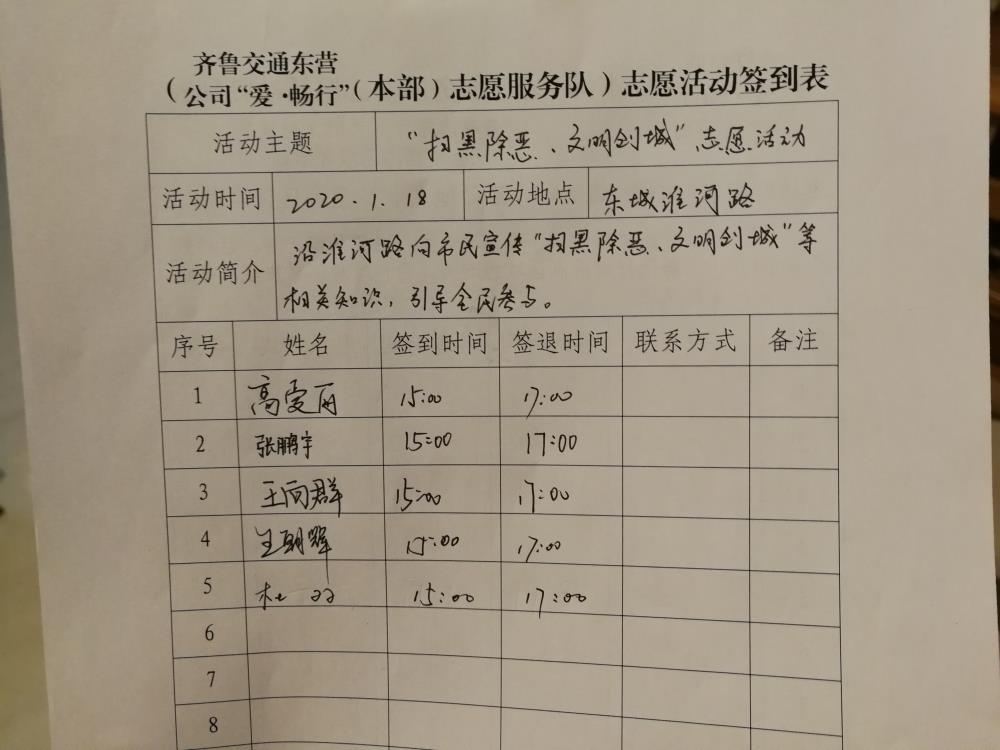 齐鲁交通东营
（公司“爱·畅行”（本部）志愿服务队）志愿活动签到表
活动主题 “扫黑除恶、文明创城”志愿活动
活动时间 2020.1.18 活动地点 东城淮河路
活动简介 沿淮河路向市民宣传“扫黑除恶、文明创城”等
相关知识，引导全民参与。
序号 姓名 签到时间 签退时间 联系方式 备注
1 高爱丽 15:00 17:00
2 张鹏宇 15:00 17:00
3 王向群 15:00 17:00
4 15:00 17:00
5 杜双 15:00 17:00
6
7
8